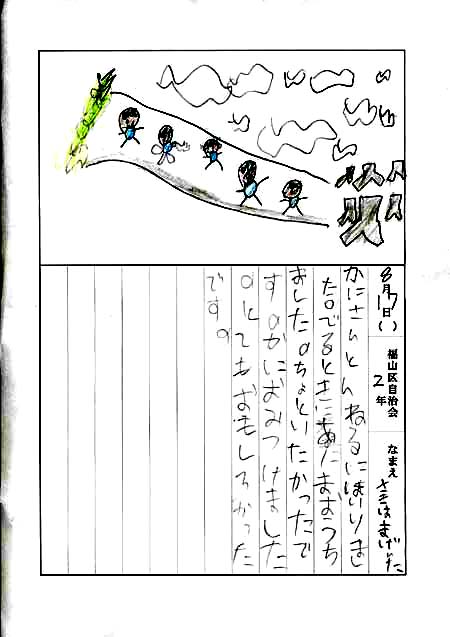 8月17日( )
福山区自治会
2年
なまえ
かにさんとんねるにはいりまし
た。でるときにあたまおうち
ました。ちょといたかったで
す。かにおみつけました
。とてもおもしろかった
です。